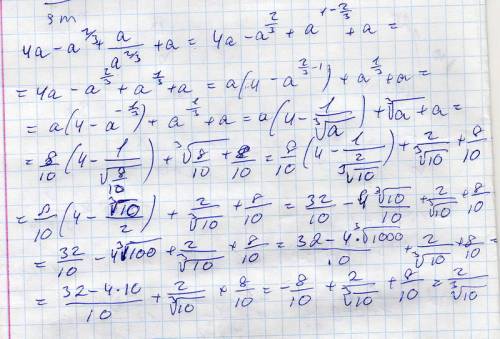 3m
4a - a^{2/3} + \frac{a}{a^{2/3}} + a = 4a - a^{\frac{2}{3}} + a^{1-\frac{2}{3}} + a =
= 4a - a^{\frac{2}{3}} + a^{\frac{1}{3}} + a = a(4 - a^{\frac{2}{3}-1}) + a^{\frac{1}{3}} + a =
= a(4 - a^{-\frac{1}{3}}) + a^{\frac{1}{3}} + a = a(4 - \frac{1}{\sqrt[3]{a}}) + \sqrt[3]{a} + a =
= \frac{8}{10}(4 - \frac{1}{\sqrt[3]{\frac{8}{10}}}) + \sqrt[3]{\frac{8}{10}} + \frac{8}{10} = \frac{8}{10}(4 - \frac{1}{\frac{2}{\sqrt[3]{10}}}) + \frac{2}{\sqrt[3]{10}} + \frac{8}{10}
= \frac{8}{10}(4 - \frac{\sqrt[3]{10}}{2}) + \frac{2}{\sqrt[3]{10}} + \frac{8}{10} = \frac{32}{10} - \frac{4\sqrt[3]{10}}{10} + \frac{2}{\sqrt[3]{10}} + \frac{8}{10}
= \frac{32}{10} - 4\sqrt[3]{100} + \frac{2}{\sqrt[3]{10}} + \frac{8}{10} = \frac{32 - 4 \cdot \sqrt[3]{1000}}{10} + \frac{2}{\sqrt[3]{10}} + \frac{8}{10} =
= \frac{32 - 4 \cdot 10}{10} + \frac{2}{\sqrt[3]{10}} + \frac{8}{10} = -\frac{8}{10} + \frac{2}{\sqrt[3]{10}} + \frac{8}{10} = \frac{2}{\sqrt[3]{10}}